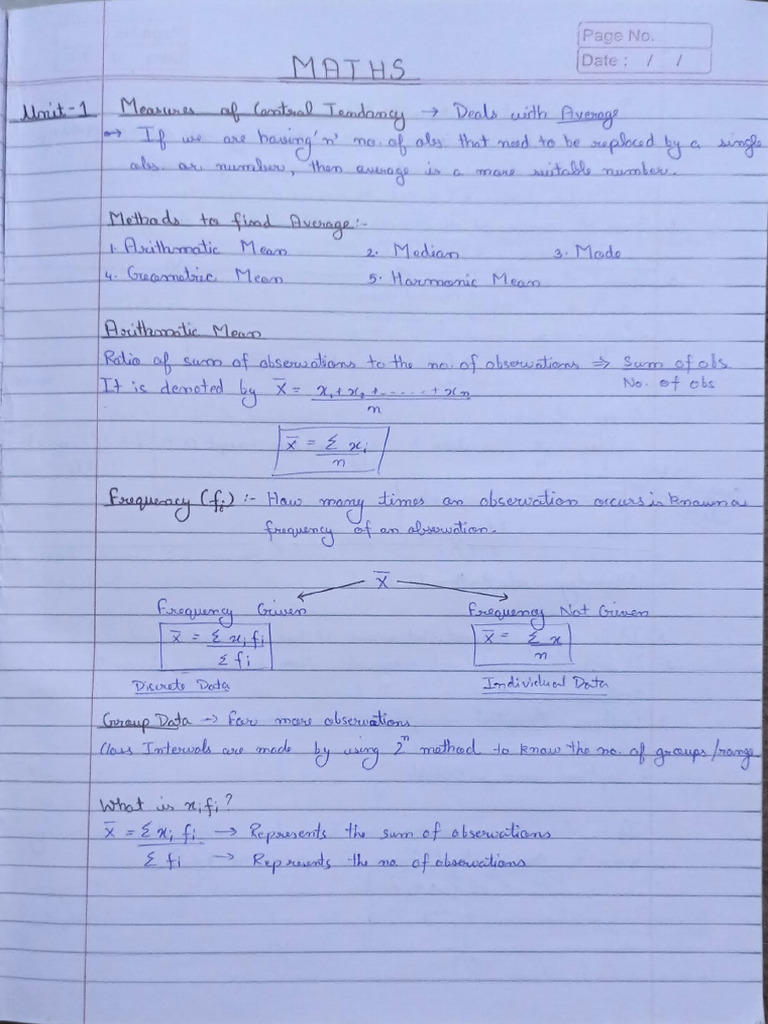 Page No.
Date : / /
MATHS
Unit-1 Measures of Central Tendancy → Deals with Average
→ If we are having 'n' no. of obs. that need to be replaced by a single
obs. or number, then average is a more suitable number.
Methods to find Average:-
1. Arithmatic Mean 2. Median 3. Mode
4. Geometric Mean 5. Harmonic Mean
Arithmatic Mean
Ratio of sum of observations to the no. of observations ⇒ Sum of obs.
No. of obs
It is denoted by x̄ = x₁ + x₂ + ...... + xₙ
n
x̄ = Σ xᵢ
n
Frequency (fᵢ) :- How many times an observation occurs is known as
frequency of an observation.
x̄
Frequency Given Frequency Not Given
x̄ = Σ xᵢ fᵢ x̄ = Σ x
Σ fᵢ n
Discrete Data Individual Data
Group Data → For more observations
Class Intervals are made by using 2ⁿ method to know the no. of groups/range
What is xᵢfᵢ?
x̄ = Σ xᵢ fᵢ → Represents the sum of observations
Σ fᵢ → Represents the no. of observations